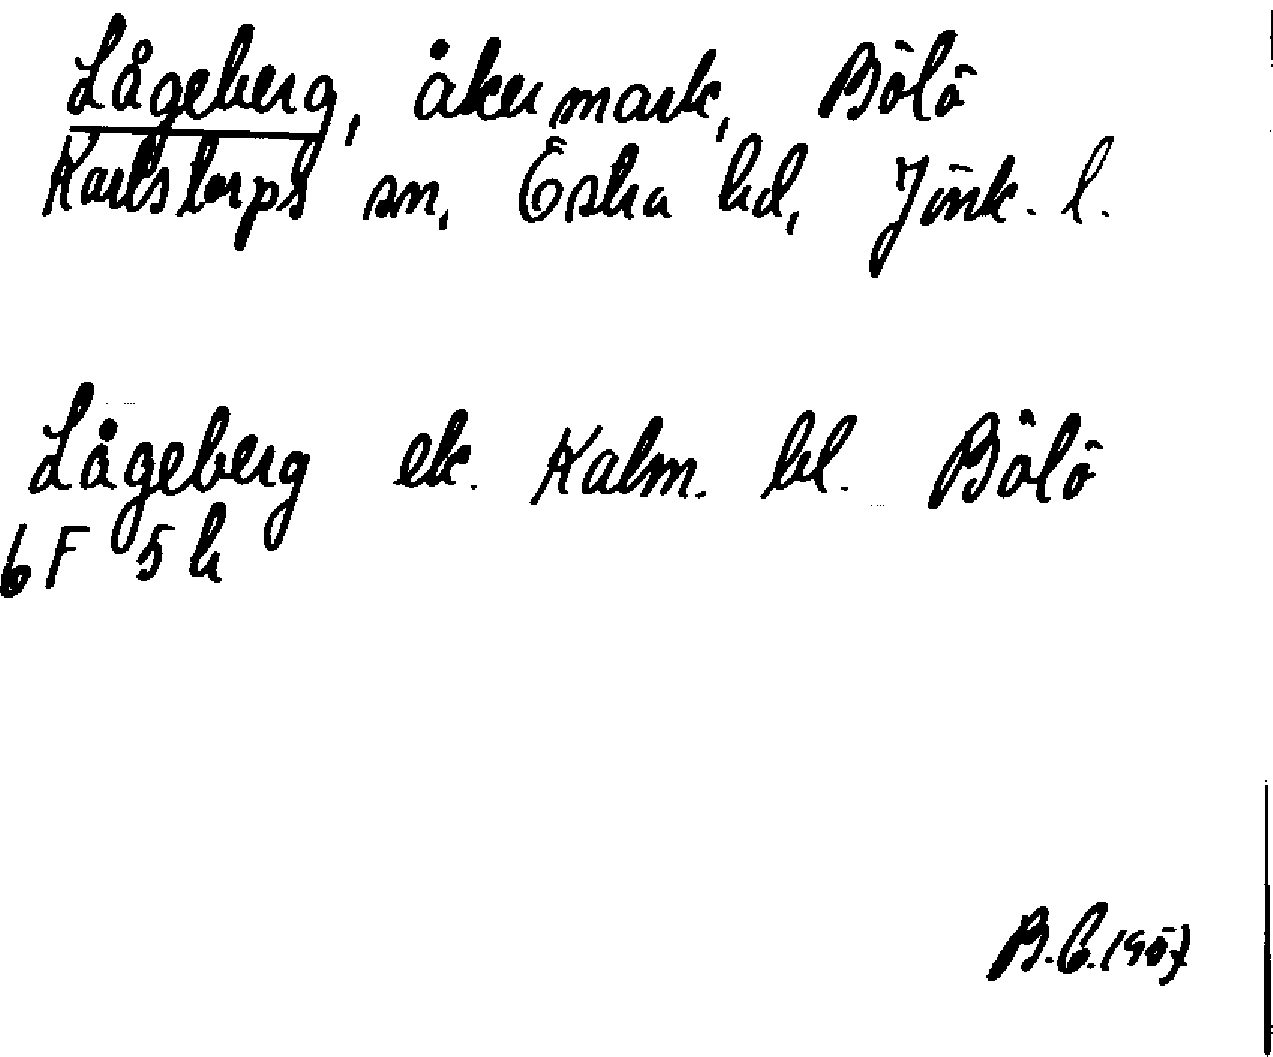 Lågeberg, åkermark, Bölö
Karlstorps sn, Östra hd, Jönk. l.
Lågeberg ek. Kalm. bl. Bölö
6 F 5 h
B.C. 1957